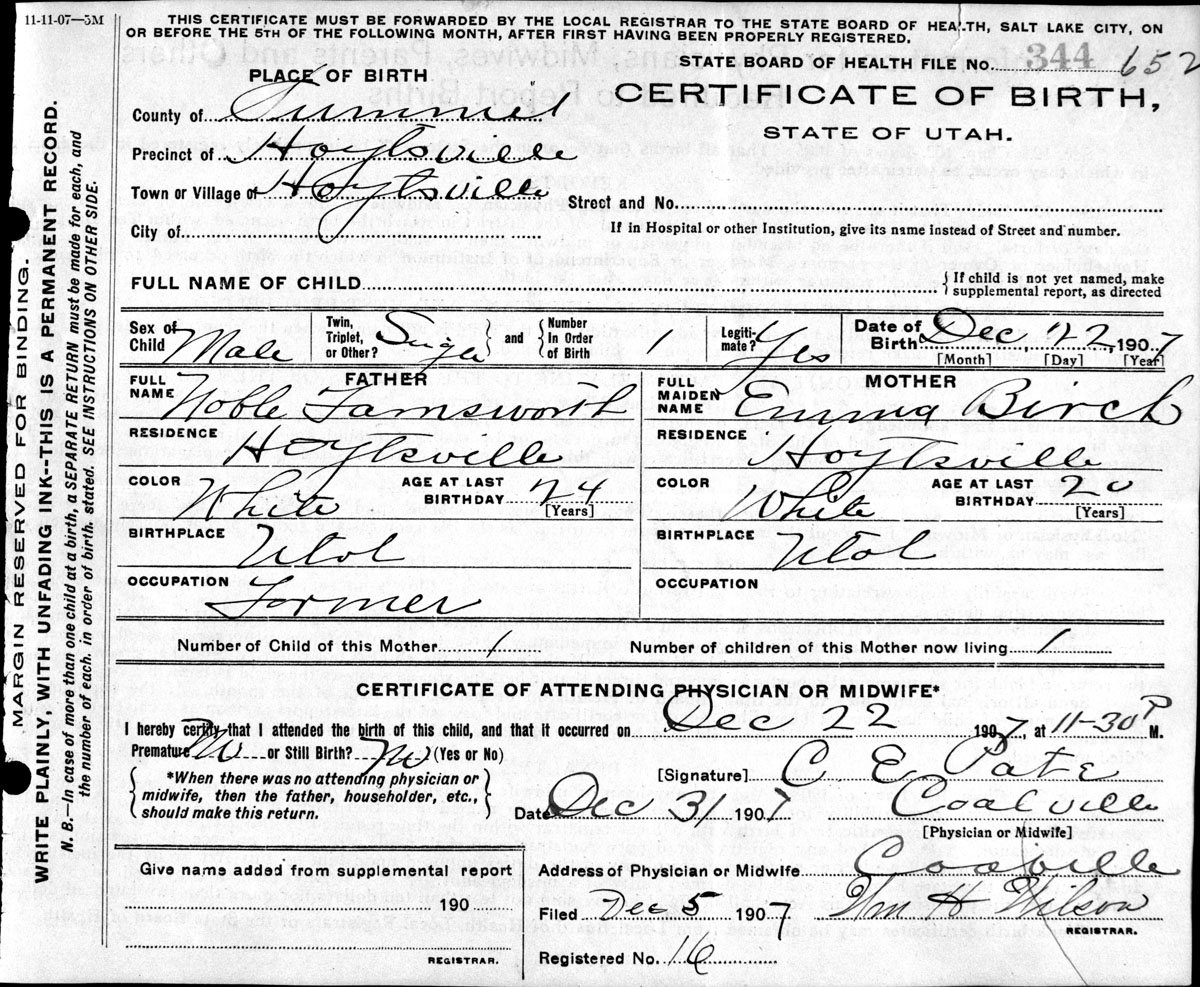 11-11-07—3M
THIS CERTIFICATE MUST BE FORWARDED BY THE LOCAL REGISTRAR TO THE STATE BOARD OF HEALTH, SALT LAKE CITY, ON
OR BEFORE THE 5TH OF THE FOLLOWING MONTH, AFTER FIRST HAVING BEEN PROPERLY REGISTERED.
STATE BOARD OF HEALTH FILE No. 344 652
PLACE OF BIRTH
CERTIFICATE OF BIRTH,
STATE OF UTAH.
County of Summit
Precinct of Hoytsville
Town or Village of Hoytsville
Street and No.
City of
If in Hospital or other Institution, give its name instead of Street and number.
FULL NAME OF CHILD
{ If child is not yet named, make supplemental report, as directed
Sex of Child Male
Twin, Triplet, or Other? Single } and { Number In Order of Birth 1
Legitimate? Yes
Date of Birth Dec, 22, 1907
[Month] [Day] [Year]
FATHER
FULL NAME Noble Farnsworth
RESIDENCE Hoytsville
COLOR White AGE AT LAST BIRTHDAY 24 [Years]
BIRTHPLACE Utah
OCCUPATION Farmer
MOTHER
FULL MAIDEN NAME Emma Birch
RESIDENCE Hoytsville
COLOR White AGE AT LAST BIRTHDAY 20 [Years]
BIRTHPLACE Utah
OCCUPATION
Number of Child of this Mother 1 Number of children of this Mother now living 1
CERTIFICATE OF ATTENDING PHYSICIAN OR MIDWIFE*
I hereby certify that I attended the birth of this child, and that it occurred on Dec 22 1907, at 11-30 P M.
Premature No or Still Birth? No (Yes or No)
{ *When there was no attending physician or
midwife, then the father, householder, etc.,
should make this return. }
[Signature] C E Pate
Date Dec 31 1907 Coalville
[Physician or Midwife]
Give name added from supplemental report
190
REGISTRAR.
Address of Physician or Midwife Coalville
Filed Dec 5 1907 Wm H Wilson
REGISTRAR.
Registered No. 16
MARGIN RESERVED FOR BINDING.
WRITE PLAINLY, WITH UNFADING INK--THIS IS A PERMANENT RECORD.
N. B.—In case of more than one child at a birth, a SEPARATE RETURN must be made for each, and
the number of each. in order of birth. stated. SEE INSTRUCTIONS ON OTHER SIDE.